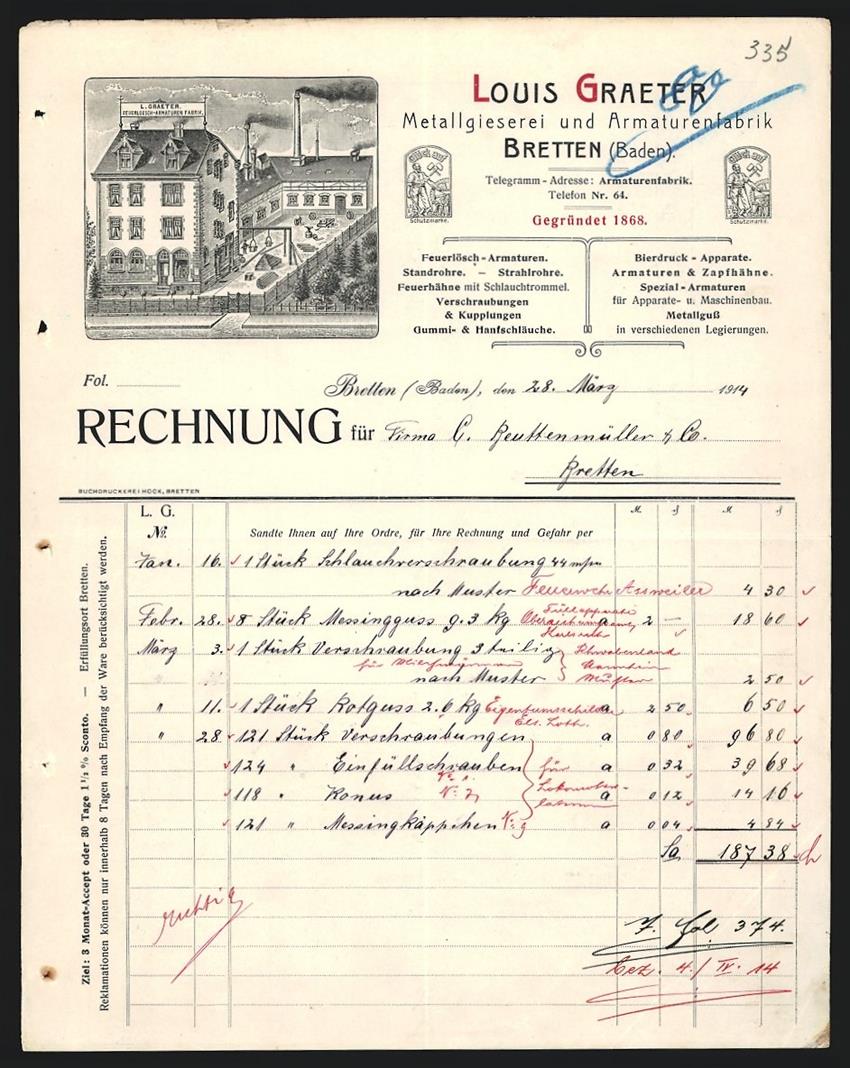 335
L. GRAETER.
FEUERLOESCH-ARMATUREN FABRIK.
LOUIS GRAETER
Metallgieserei und Armaturenfabrik
BRETTEN (Baden).
Glück auf
Schutzmarke.
Telegramm-Adresse: Armaturenfabrik.
Telefon Nr. 64.
Gegründet 1868.
Glück auf
Schutzmarke.
Feuerlösch-Armaturen.
Standrohre. – Strahlrohre.
Feuerhähne mit Schlauchtrommel.
Verschraubungen
& Kupplungen
Gummi- & Hanfschläuche.
Bierdruck-Apparate.
Armaturen & Zapfhähne.
Spezial-Armaturen
für Apparate- u. Maschinenbau.
Metallguß
in verschiedenen Legierungen.
Fol.
Bretten (Baden), den 28. März 1914
RECHNUNG für Firma C. Beuttenmüller & Co.
Bretten
BUCHDRUCKEREI HOCK, BRETTEN
L. G.
No. Sandte Ihnen auf Ihre Ordre, für Ihre Rechnung und Gefahr per M. ₰ M. ₰
Jan. 16. 1 Stück Schlauchverschraubung 44 m/m
nach Muster Feuerwehr Assweiler 4 30
Febr. 28. 8 Stück Messingguss 9.3 kg a 2 — 18 60
März 3. 1 Stück Verschraubung 3 teilig Schwabenland
Mannheim
nach Muster Muster 2 50
" 11. 1 Stück Rotguss 2.6 kg Eigentumsschilder a 2 50 6 50
Els. Loth.
" 28. 121 Stück Verschraubungen a 0 80 96 80
124 " Einfüllschrauben für a 0 32 39 68
118 " Konus a 0 12 14 16
121 " Messingkäppchen No. 9 a 0 04 4 84
Sa 187 38
richtig
7. fol 374.
bez. 4./IV. 14
Ziel: 3 Monat-Accept oder 30 Tage 1 1/2 % Sconto. — Erfüllungsort Bretten.
Reklamationen können nur innerhalb 8 Tagen nach Empfang der Ware berücksichtigt werden.